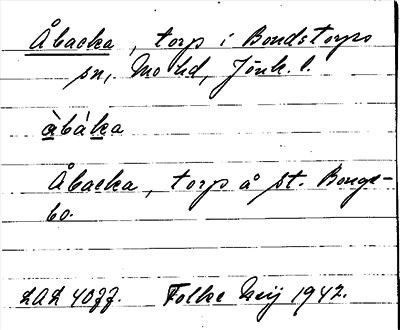 Åbacka, torp i Bondstorps
sn, Mo hd, Jönk. l.
àbáka
Åbacka, torp å st. Bonge-
bo.
LAL 4077. Folke Meij 1942.